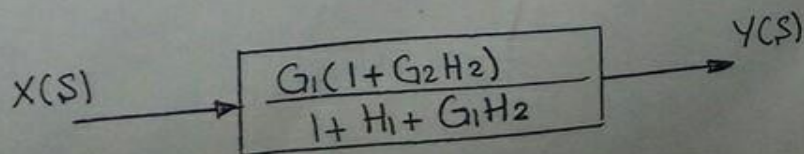 X(S)
G1(1+G2H2)
1+ H1 + G1H2
Y(S)